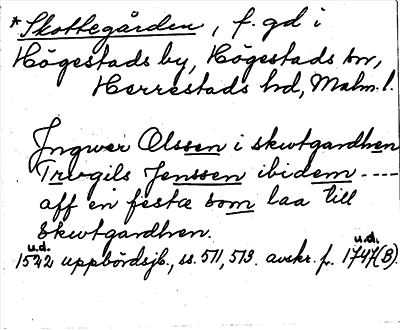 *Skottegården, f. gd i
Högestads by, Högestads sn,
Herrestads hd, Malm. l.
Jngwer Olssen i skwtgardhen
Trvgils Jenssen ibidem ----
aff en festæ som laa till
Skwtgardhen.
u.d. u.d.
1522 uppbördsjb., ss. 571, 573. avskr. f. 1747(B).